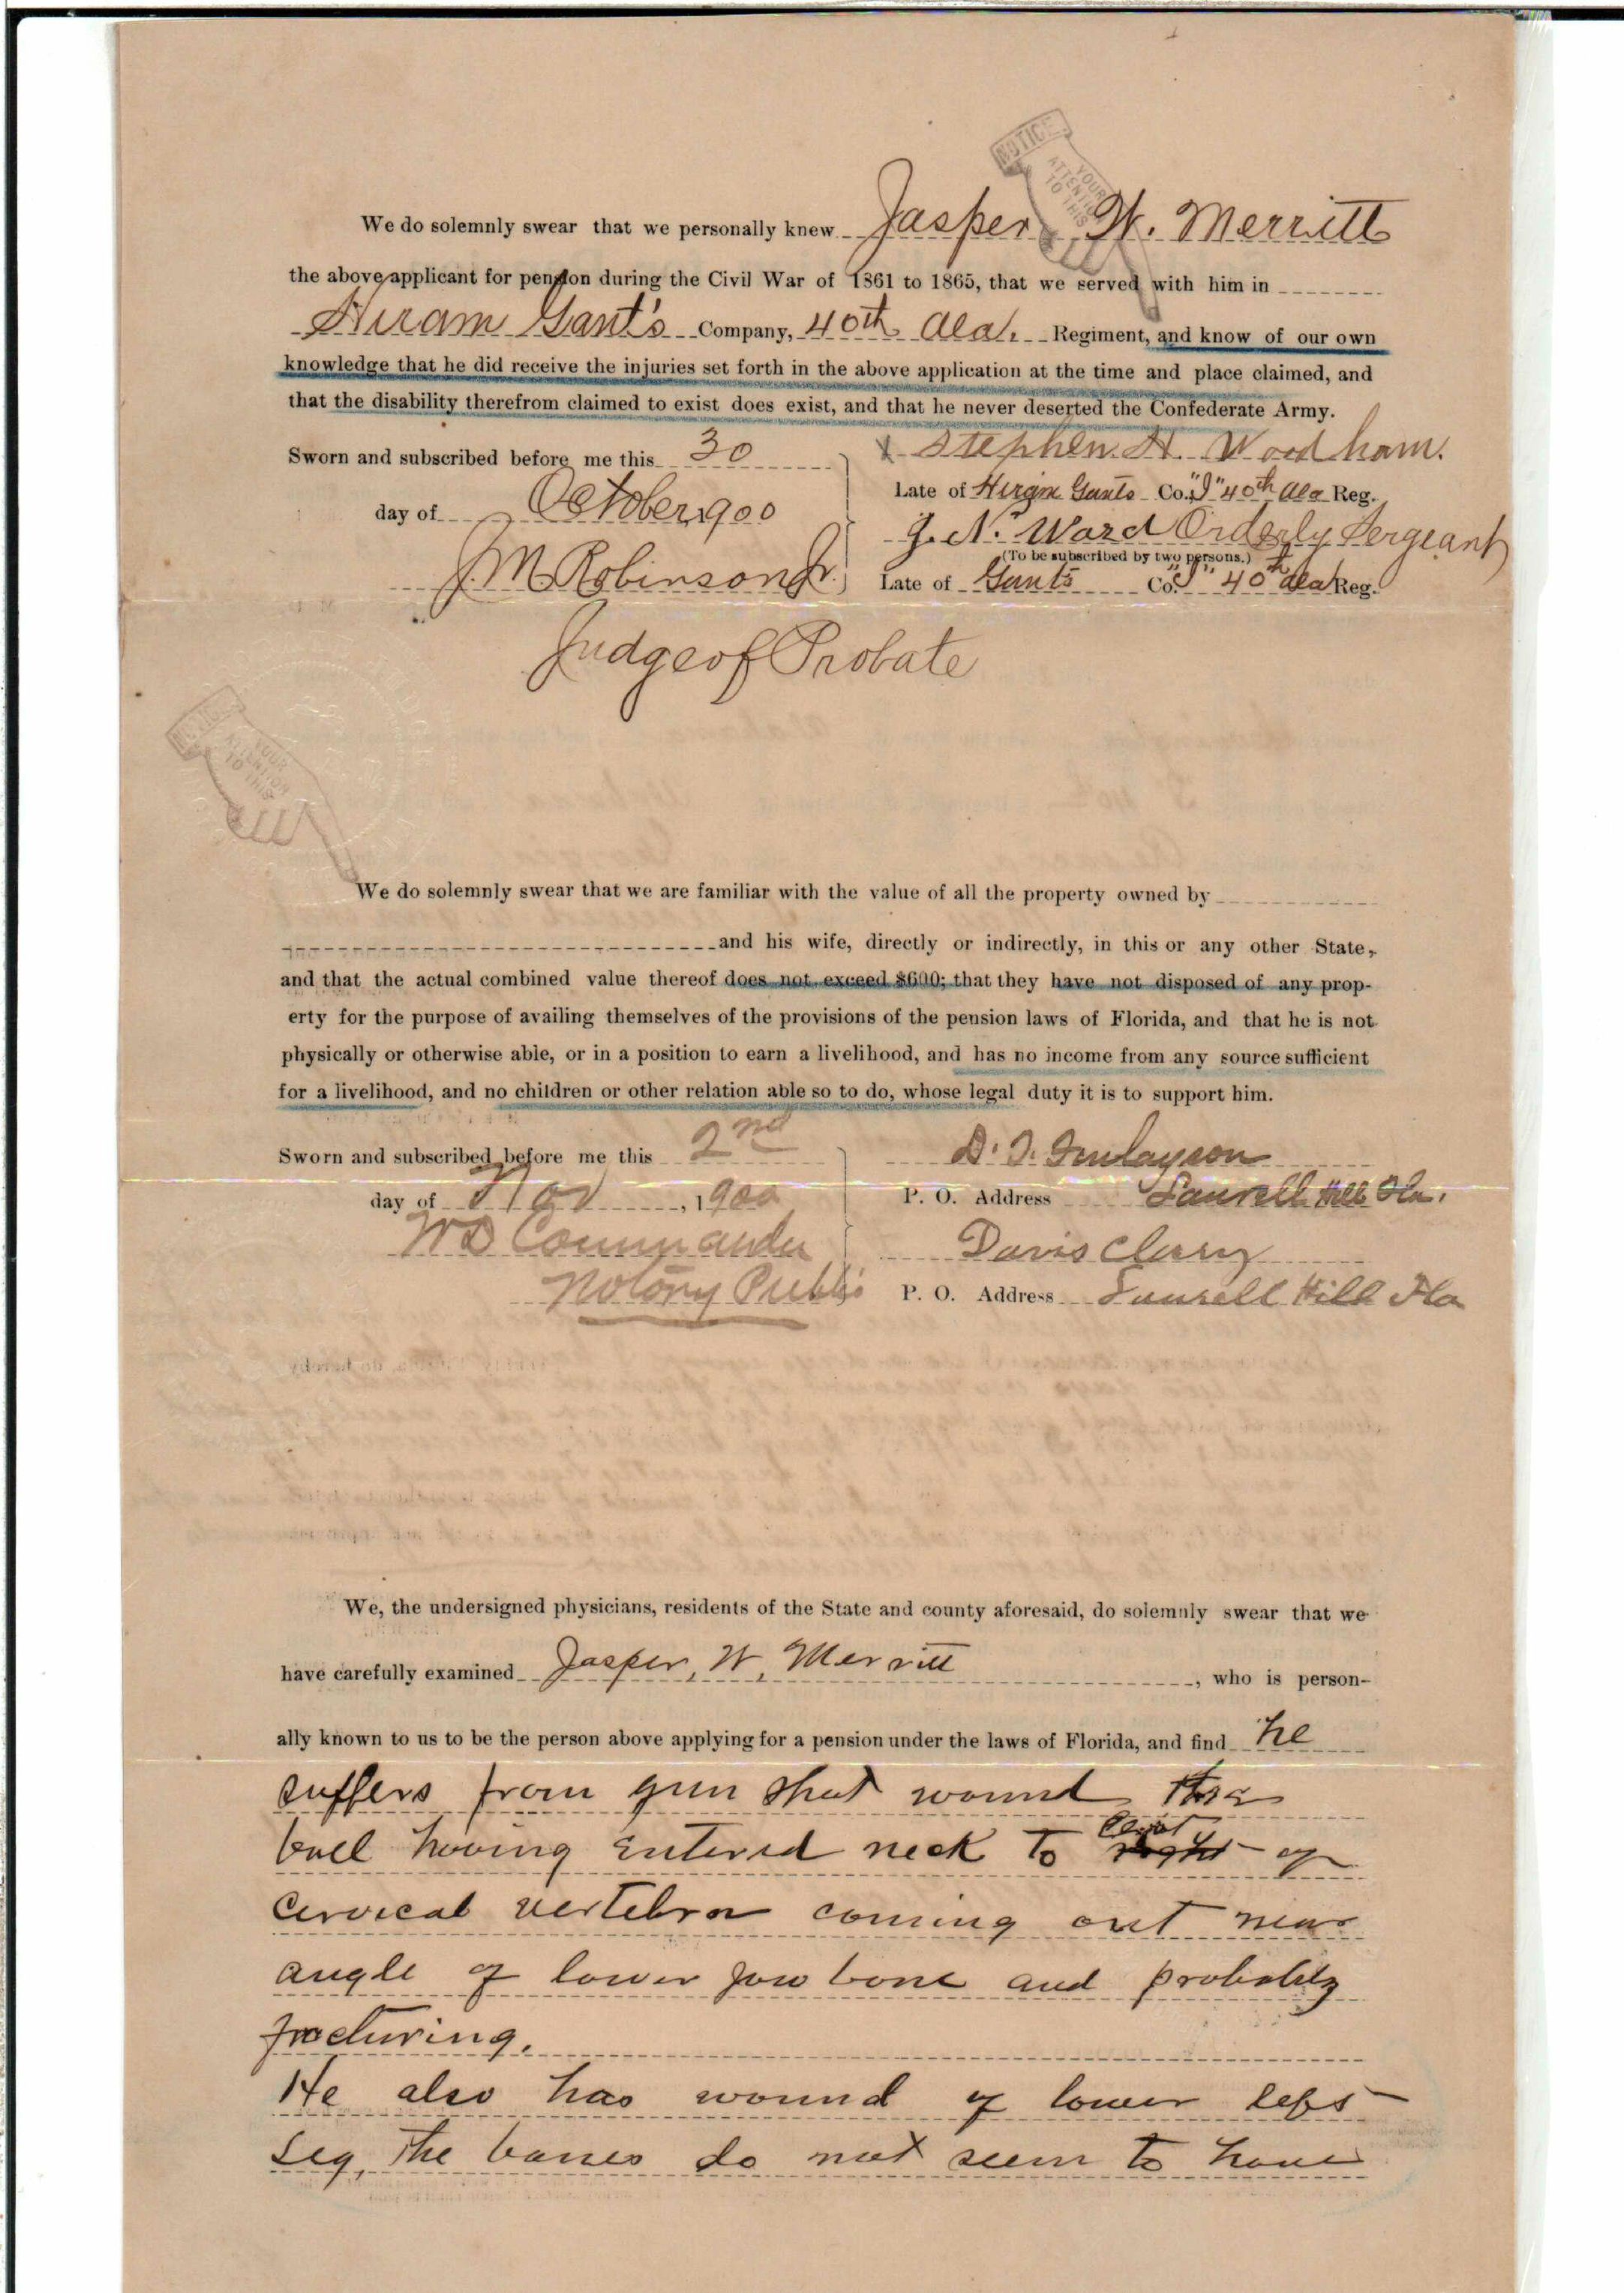 NOTICE
YOUR
ATTENTION
TO THIS
We do solemnly swear that we personally knew Jasper W. Merritt
the above applicant for pension during the Civil War of 1861 to 1865, that we served with him in
Hiram Gant's Company, 40th Ala. Regiment, and know of our own
knowledge that he did receive the injuries set forth in the above application at the time and place claimed, and
that the disability therefrom claimed to exist does exist, and that he never deserted the Confederate Army.
Sworn and subscribed before me this 30
x Stephen. H. Woodham.
Late of Hiram Gants Co. "I" 40th Ala Reg.
day of October, 1900
J. N. Ward Orderly Sergeant
(To be subscribed by two persons.)
J. M. Robinson Jr.
Late of Gants Co. "I" 40th Ala Reg.
Judge of Probate
NOTICE
YOUR
ATTENTION
TO THIS
We do solemnly swear that we are familiar with the value of all the property owned by
and his wife, directly or indirectly, in this or any other State,
and that the actual combined value thereof does not exceed $600; that they have not disposed of any prop-
erty for the purpose of availing themselves of the provisions of the pension laws of Florida, and that he is not
physically or otherwise able, or in a position to earn a livelihood, and has no income from any source sufficient
for a livelihood, and no children or other relation able so to do, whose legal duty it is to support him.
Sworn and subscribed before me this 2nd
D. T. Finlayson
day of Nov, 1900
P. O. Address Laurell Hill Fla.
W D Commander
Davis Clary
Notory Public
P. O. Address Laurell Hill Fla
We, the undersigned physicians, residents of the State and county aforesaid, do solemnly swear that we
have carefully examined Jasper, W, Merritt, who is person-
ally known to us to be the person above applying for a pension under the laws of Florida, and find he
suffers from gun shot wound the
ball having entered neck to right of
cervical vertebra coming out near
angle of lower jaw bone and probably
fracturing.
He also has wound of lower left
Leg, the bones do not seem to have